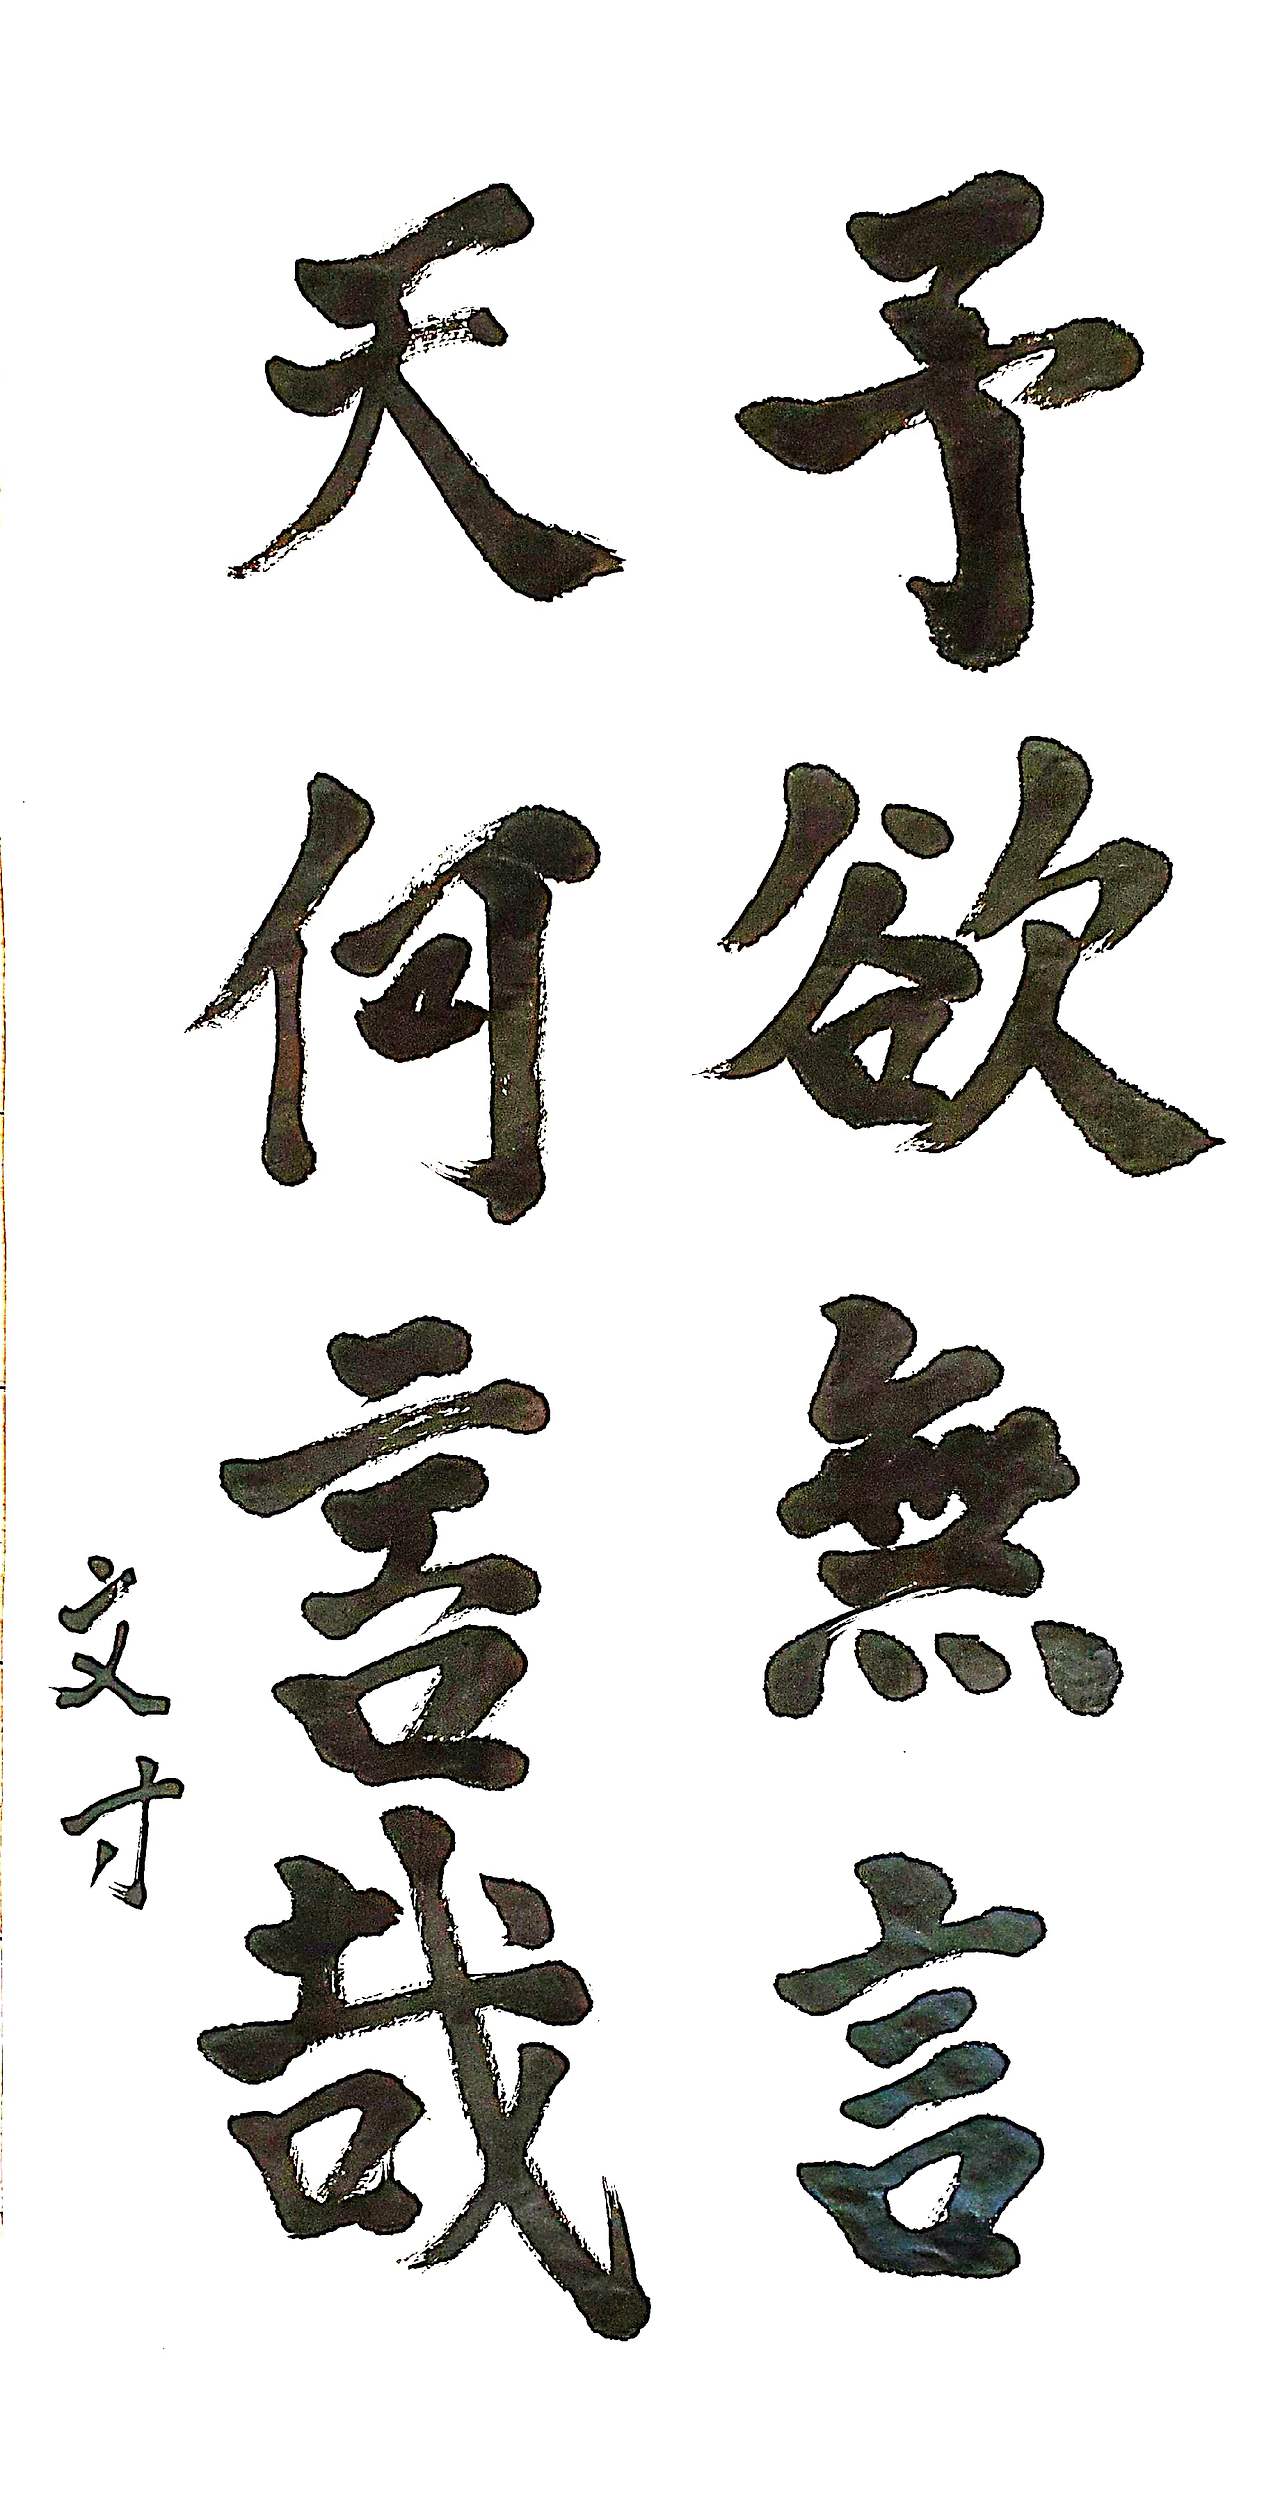 予欲無言
天何言哉
文寸